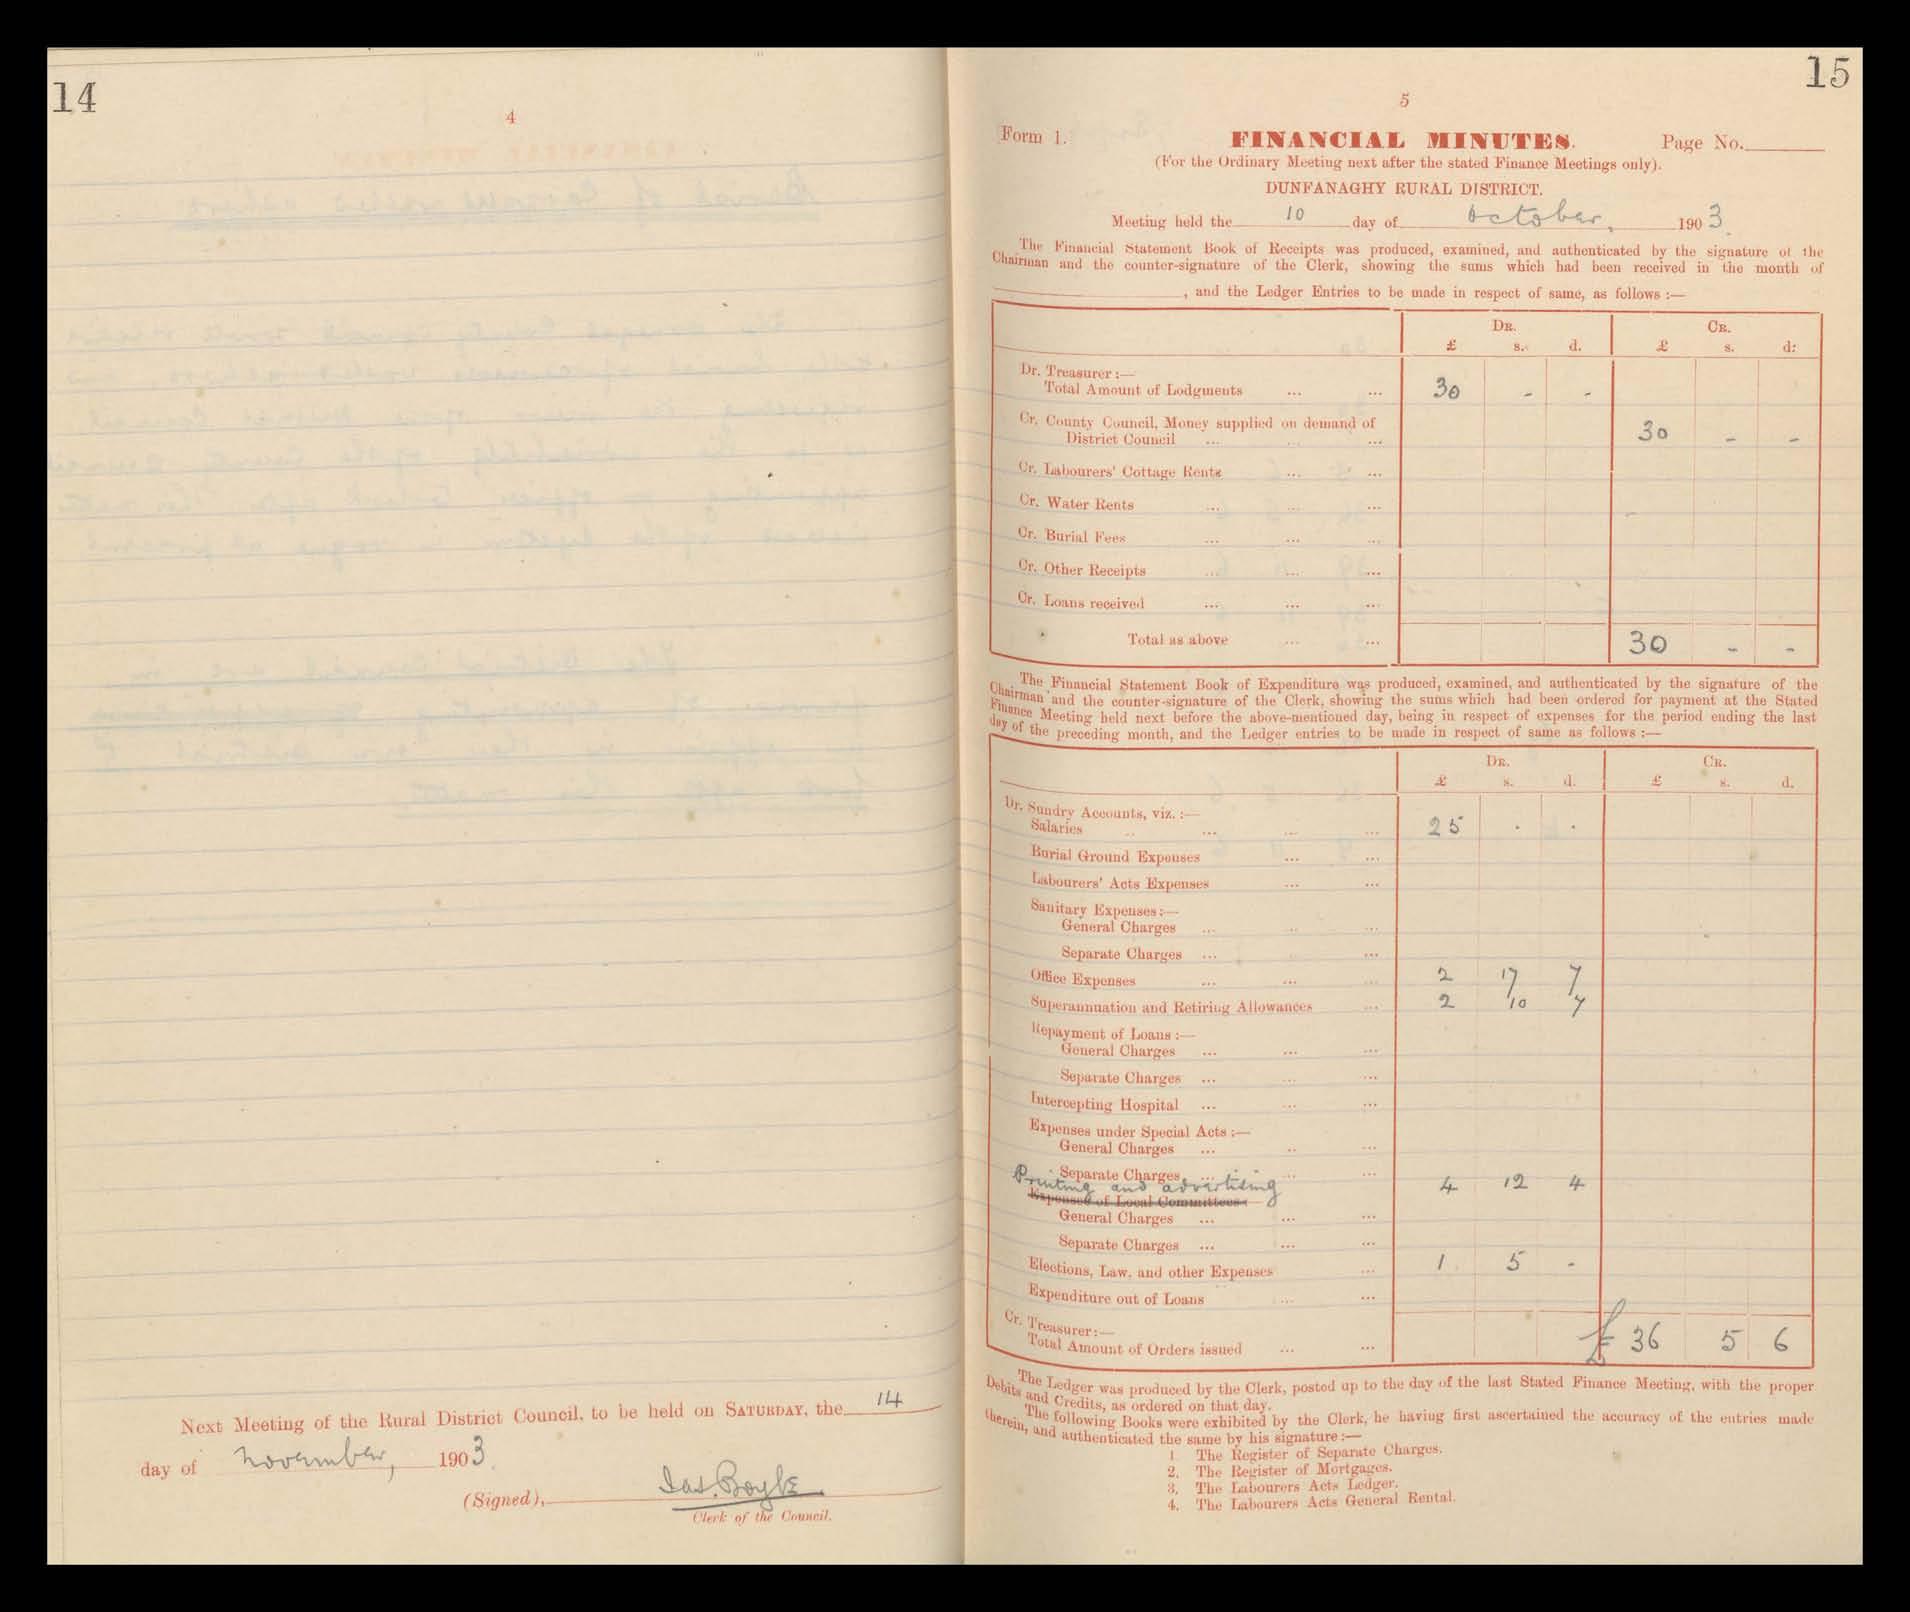 14
4
Next Meeting of the Rural District Council, to be held on SATURDAY, the 14
day of november, 1903.
(Signed), Jas. Boyle
Clerk of the Council.
15
5
Form 1. FINANCIAL MINUTES. Page No.
(For the Ordinary Meeting next after the stated Finance Meetings only).
DUNFANAGHY RURAL DISTRICT.
Meeting held the 10 day of October, 1903.
The Financial Statement Book of Receipts was produced, examined, and authenticated by the signature of the
Chairman and the counter-signature of the Clerk, showing the sums which had been received in the month of
, and the Ledger Entries to be made in respect of same, as follows :—
DR. CR.
£ s. d. £ s. d.
Dr. Treasurer :—
Total Amount of Lodgments ... ... 30 - -
Cr. County Council, Money supplied on demand of
District Council ... ... ... 30 - -
Cr. Labourers' Cottage Rents ... ...
Cr. Water Rents ... ... ...
Cr. Burial Fees ... ... ...
Cr. Other Receipts ... ... ...
Cr. Loans received ... ... ...
Total as above ... ... 30 - -
The Financial Statement Book of Expenditure was produced, examined, and authenticated by the signature of the
Chairman and the counter-signature of the Clerk, showing the sums which had been ordered for payment at the Stated
Finance Meeting held next before the above-mentioned day, being in respect of expenses for the period ending the last
day of the preceding month, and the Ledger entries to be made in respect of same as follows :—
DR. CR.
£ s. d. £ s. d.
Dr. Sundry Accounts, viz. :—
Salaries ... ... ... ... 25 . .
Burial Ground Expenses ... ...
Labourers' Acts Expenses ... ...
Sanitary Expenses :—
General Charges ... ... ...
Separate Charges ... ... ...
Office Expenses ... ... ... 2 17 7
Superannuation and Retiring Allowances ... 2 10 7
Repayment of Loans :—
General Charges ... ... ...
Separate Charges ... ... ...
Intercepting Hospital ... ... ...
Expenses under Special Acts :—
General Charges ... ... ...
Separate Charges ... ... ...
Printing and advertising 4 12 4
Expenses of Local Committees
General Charges ... ... ...
Separate Charges ... ... ...
Elections, Law, and other Expenses ... 1 5 -
Expenditure out of Loans ... ...
Cr. Treasurer :—
Total Amount of Orders issued ... ... £ 36 5 6
The Ledger was produced by the Clerk, posted up to the day of the last Stated Finance Meeting, with the proper
Debits and Credits, as ordered on that day.
The following Books were exhibited by the Clerk, he having first ascertained the accuracy of the entries made
therein, and authenticated the same by his signature :—
1. The Register of Separate Charges.
2. The Register of Mortgages.
3. The Labourers Acts Ledger.
4. The Labourers Acts General Rental.